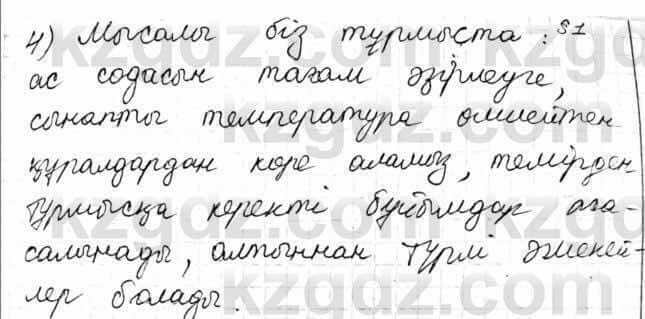 4) Мысалы біз тұрмыста :
ас содасын тағам әзірлеуге,
сынапты температура өлшейтен
құралдардан көре аламыз, темірден
тұрмысқа керекті бұйымдар
салынады, алтыннан түрлі әшекей-
лер болады.
kzgdz.com